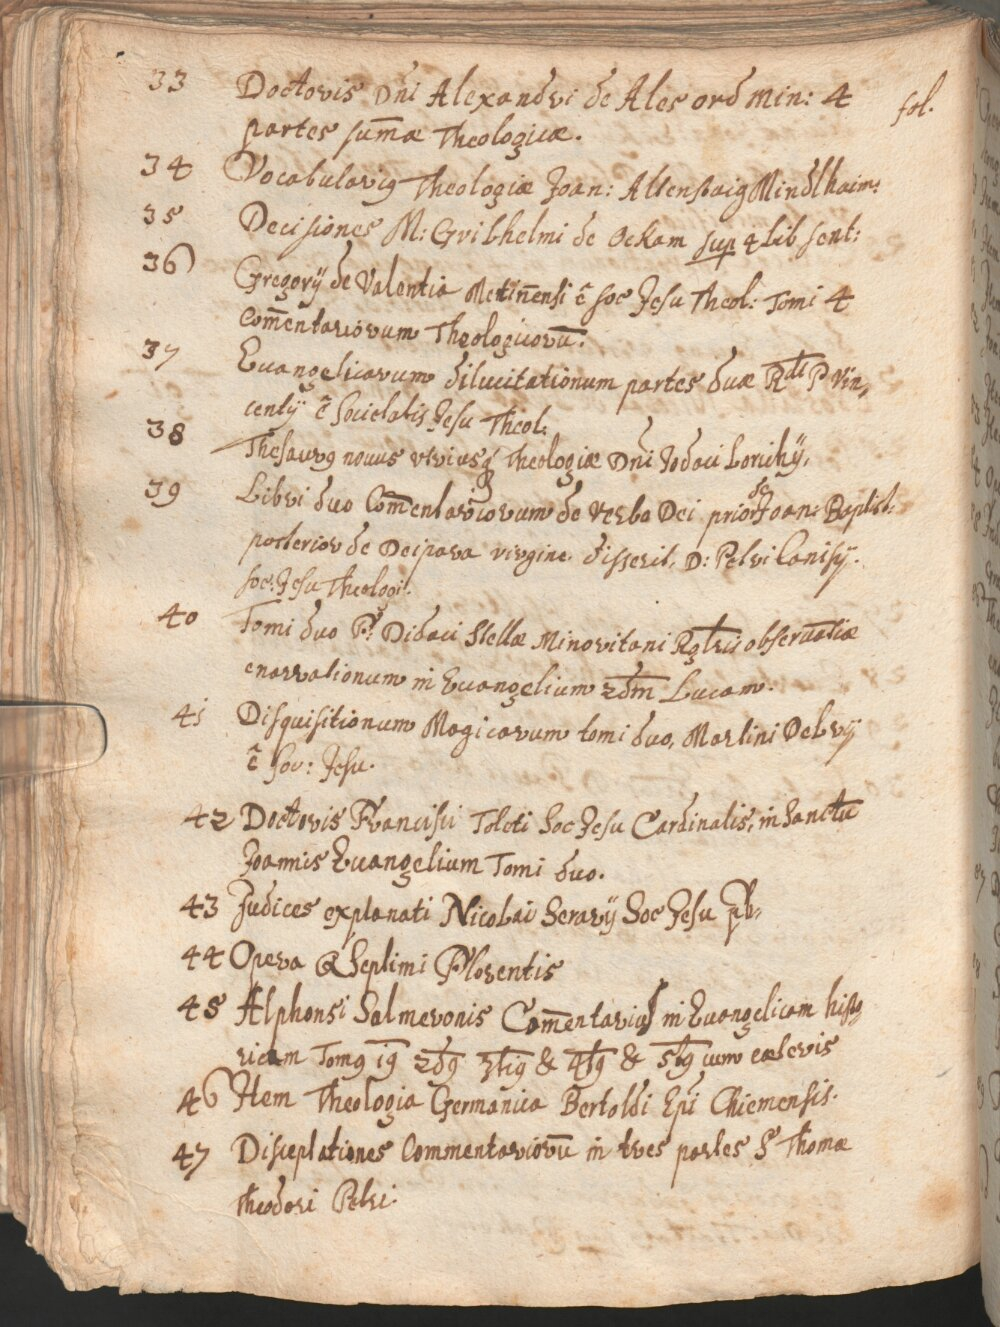 33 Doctoris Dñi Alexandri de Ales ord Min: 4 fol.
partes sum̄æ Theologicæ.
34 Vocabulariꝯ Theologiæ Joan: Altenstaig Mindlhaim:
35 Decisiones M: Guilhelmi de Ockam sup 4 Lib sent:
36 Gregorÿ de Valentia Metim̄ensi ē soc Jesu Theol: Tomi 4
Com̄entariorum Theologicorū.
37 Euangelicarum dilucitationum partes duæ Rdi P Vin,
centÿ ē Societatis Jesu Theol:
38 Thesaurꝯ nouus utriusqꝫ Theologiæ Dñi Jodoci Lorichÿ,
39 Libri duo Com̄entariorum de Verbo Dei prior de Joan: Baptist:
posterior de Deipara virgine disserit, D: Petri Canisÿ.
soc: Jesu Theologi.
40 Tomi duo Didaci Stellæ Minoritani obseruātiæ
enarrationum in Euangelium 2dm Lucam.
41 Disquisitionum Magicarum tomi duo, Martini Delrÿ
ē Soc: Jesu.
42 Doctoris Francisci Toleti Soc Jesu Cardinalis, in Sanctū
Joannis Euangelium Tomi duo.
43 Judices explanati Nicolai Serarÿ Soc Jesu
44 Opera Q Septimi Florentis
45 Alphonsi Salmeronis Com̄entarius in Euangelicam histo
ricam Tomꝯ iꝯ 2dꝯ 3tiꝯ & 4tꝯ & 5tꝯ cum cæteris
46 Item Theologia Germanica Bertoldi Epi Chiemensis.
47 Disceptationes Commentariorū in tres partes S Thomæ
Theodori Petri